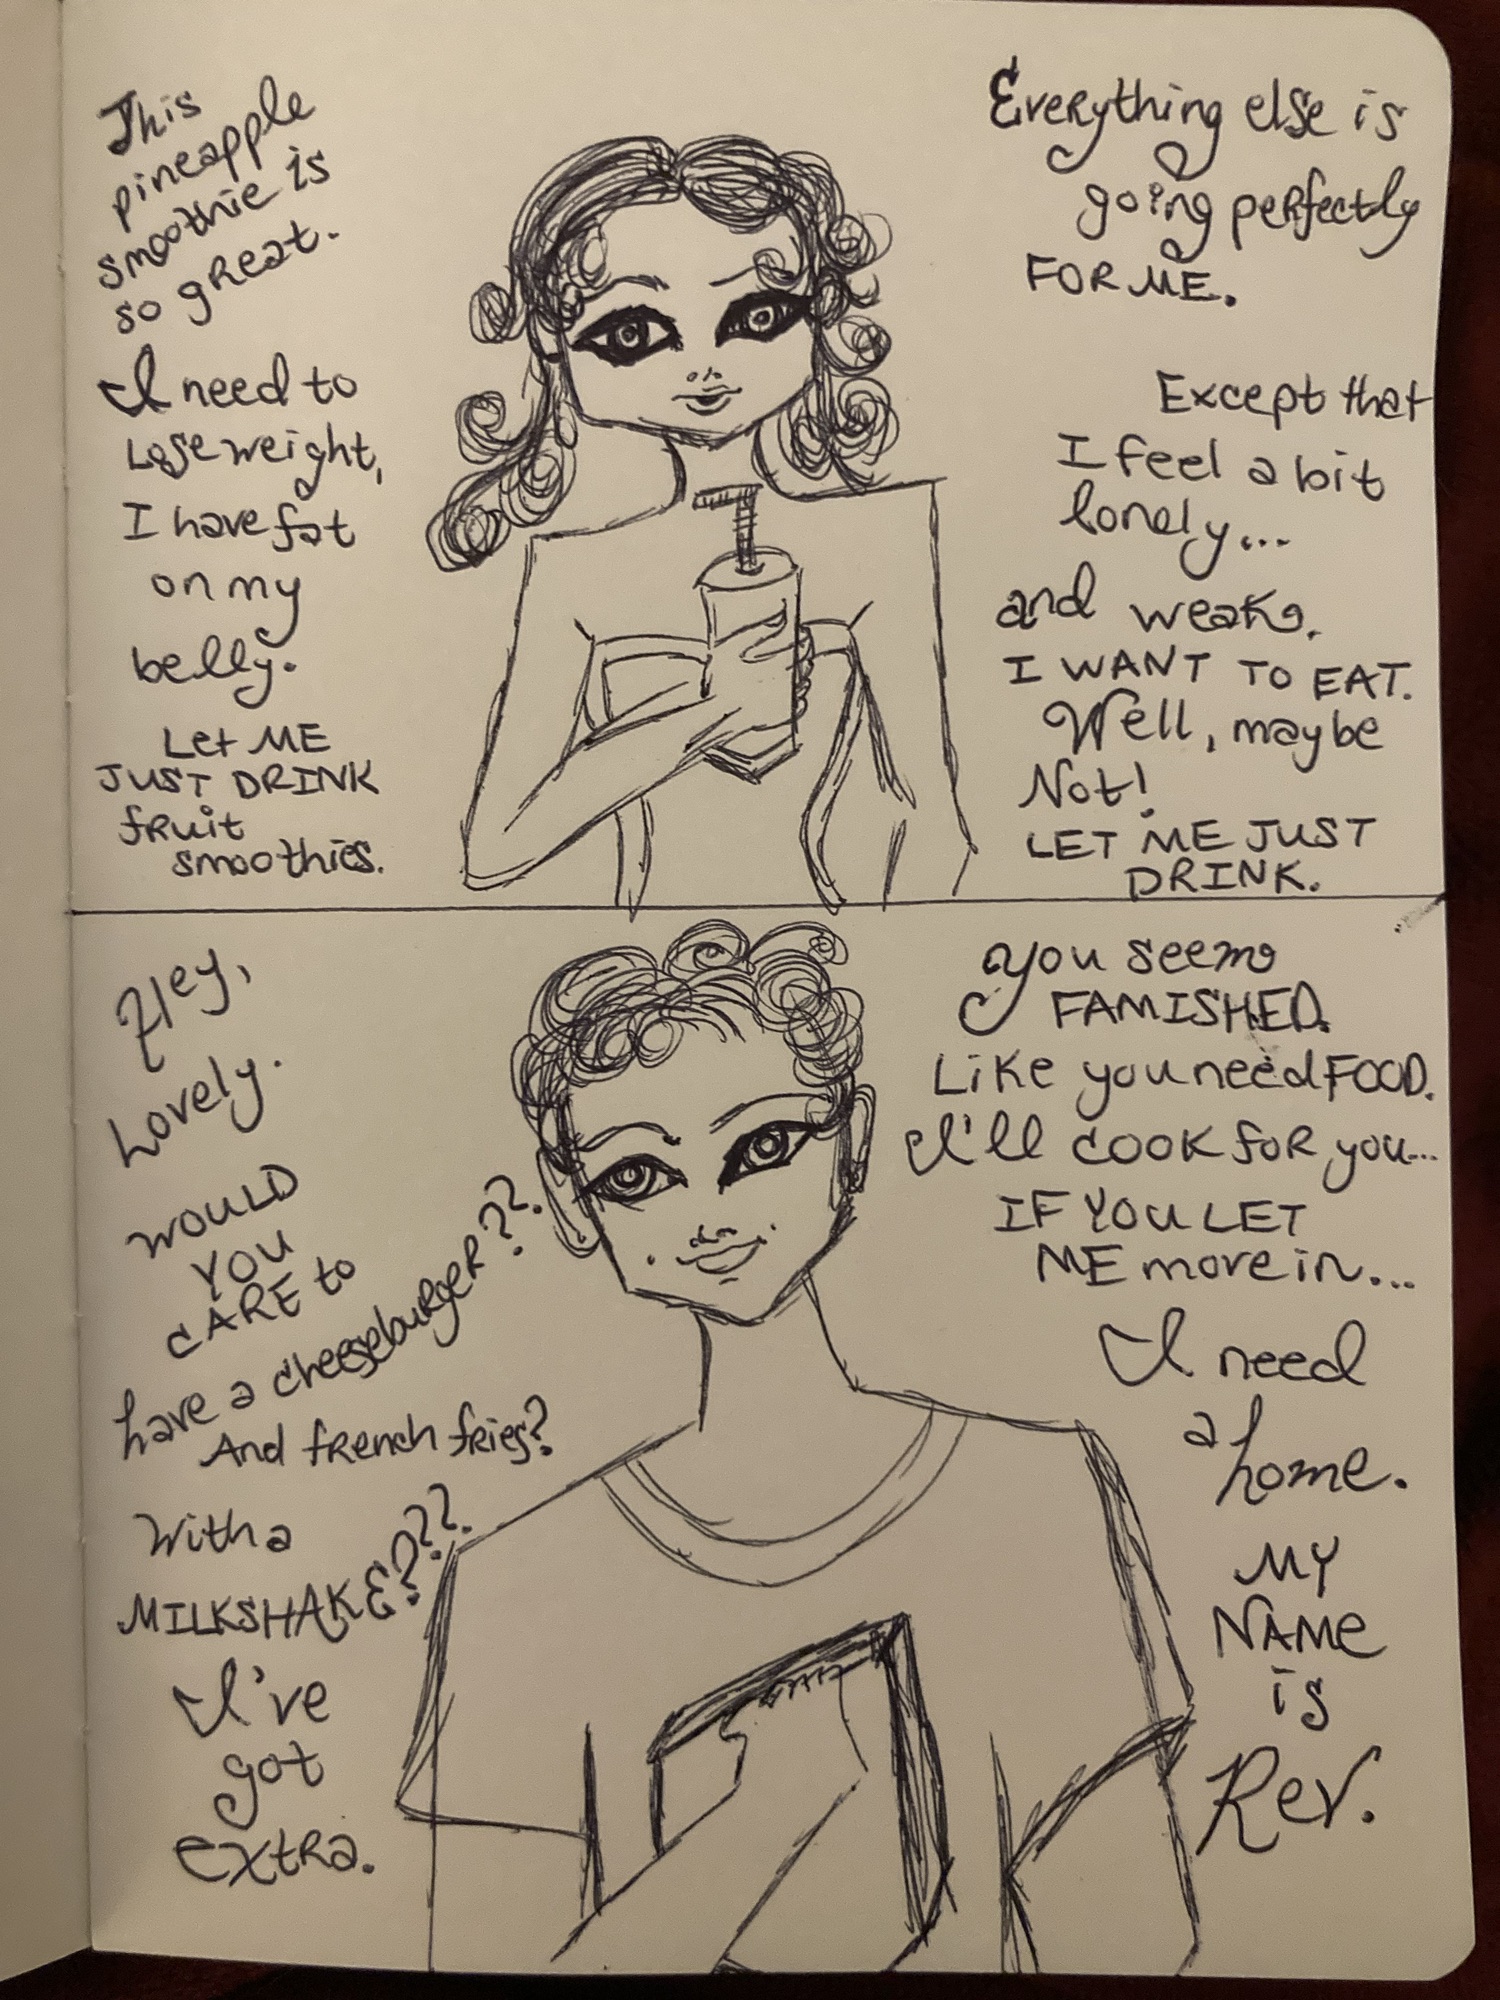 This
pineapple
smoothie is
so great.
I need to
Lose weight,
I have fat
on my
belly.
Let ME
JUST DRINK
fRuit
smoothies.
Everything else is
going perfectly
FOR ME.
Except that
I feel a bit
lonely...
and weak.
I WANT TO EAT.
Well, maybe
Not!
LET ME JUST
DRINK.
Hey,
Lovely.
WOULD
YOU
CARE to
have a cheeseburger??
And french fries?
With a
MILKSHAKE???
I've
got
extra.
You seem
FAMISHED.
Like you need FOOD.
I'll COOK foR you...
IF YOU LET
ME move in...
I need
a home.
MY
NAMe
is
Rev.